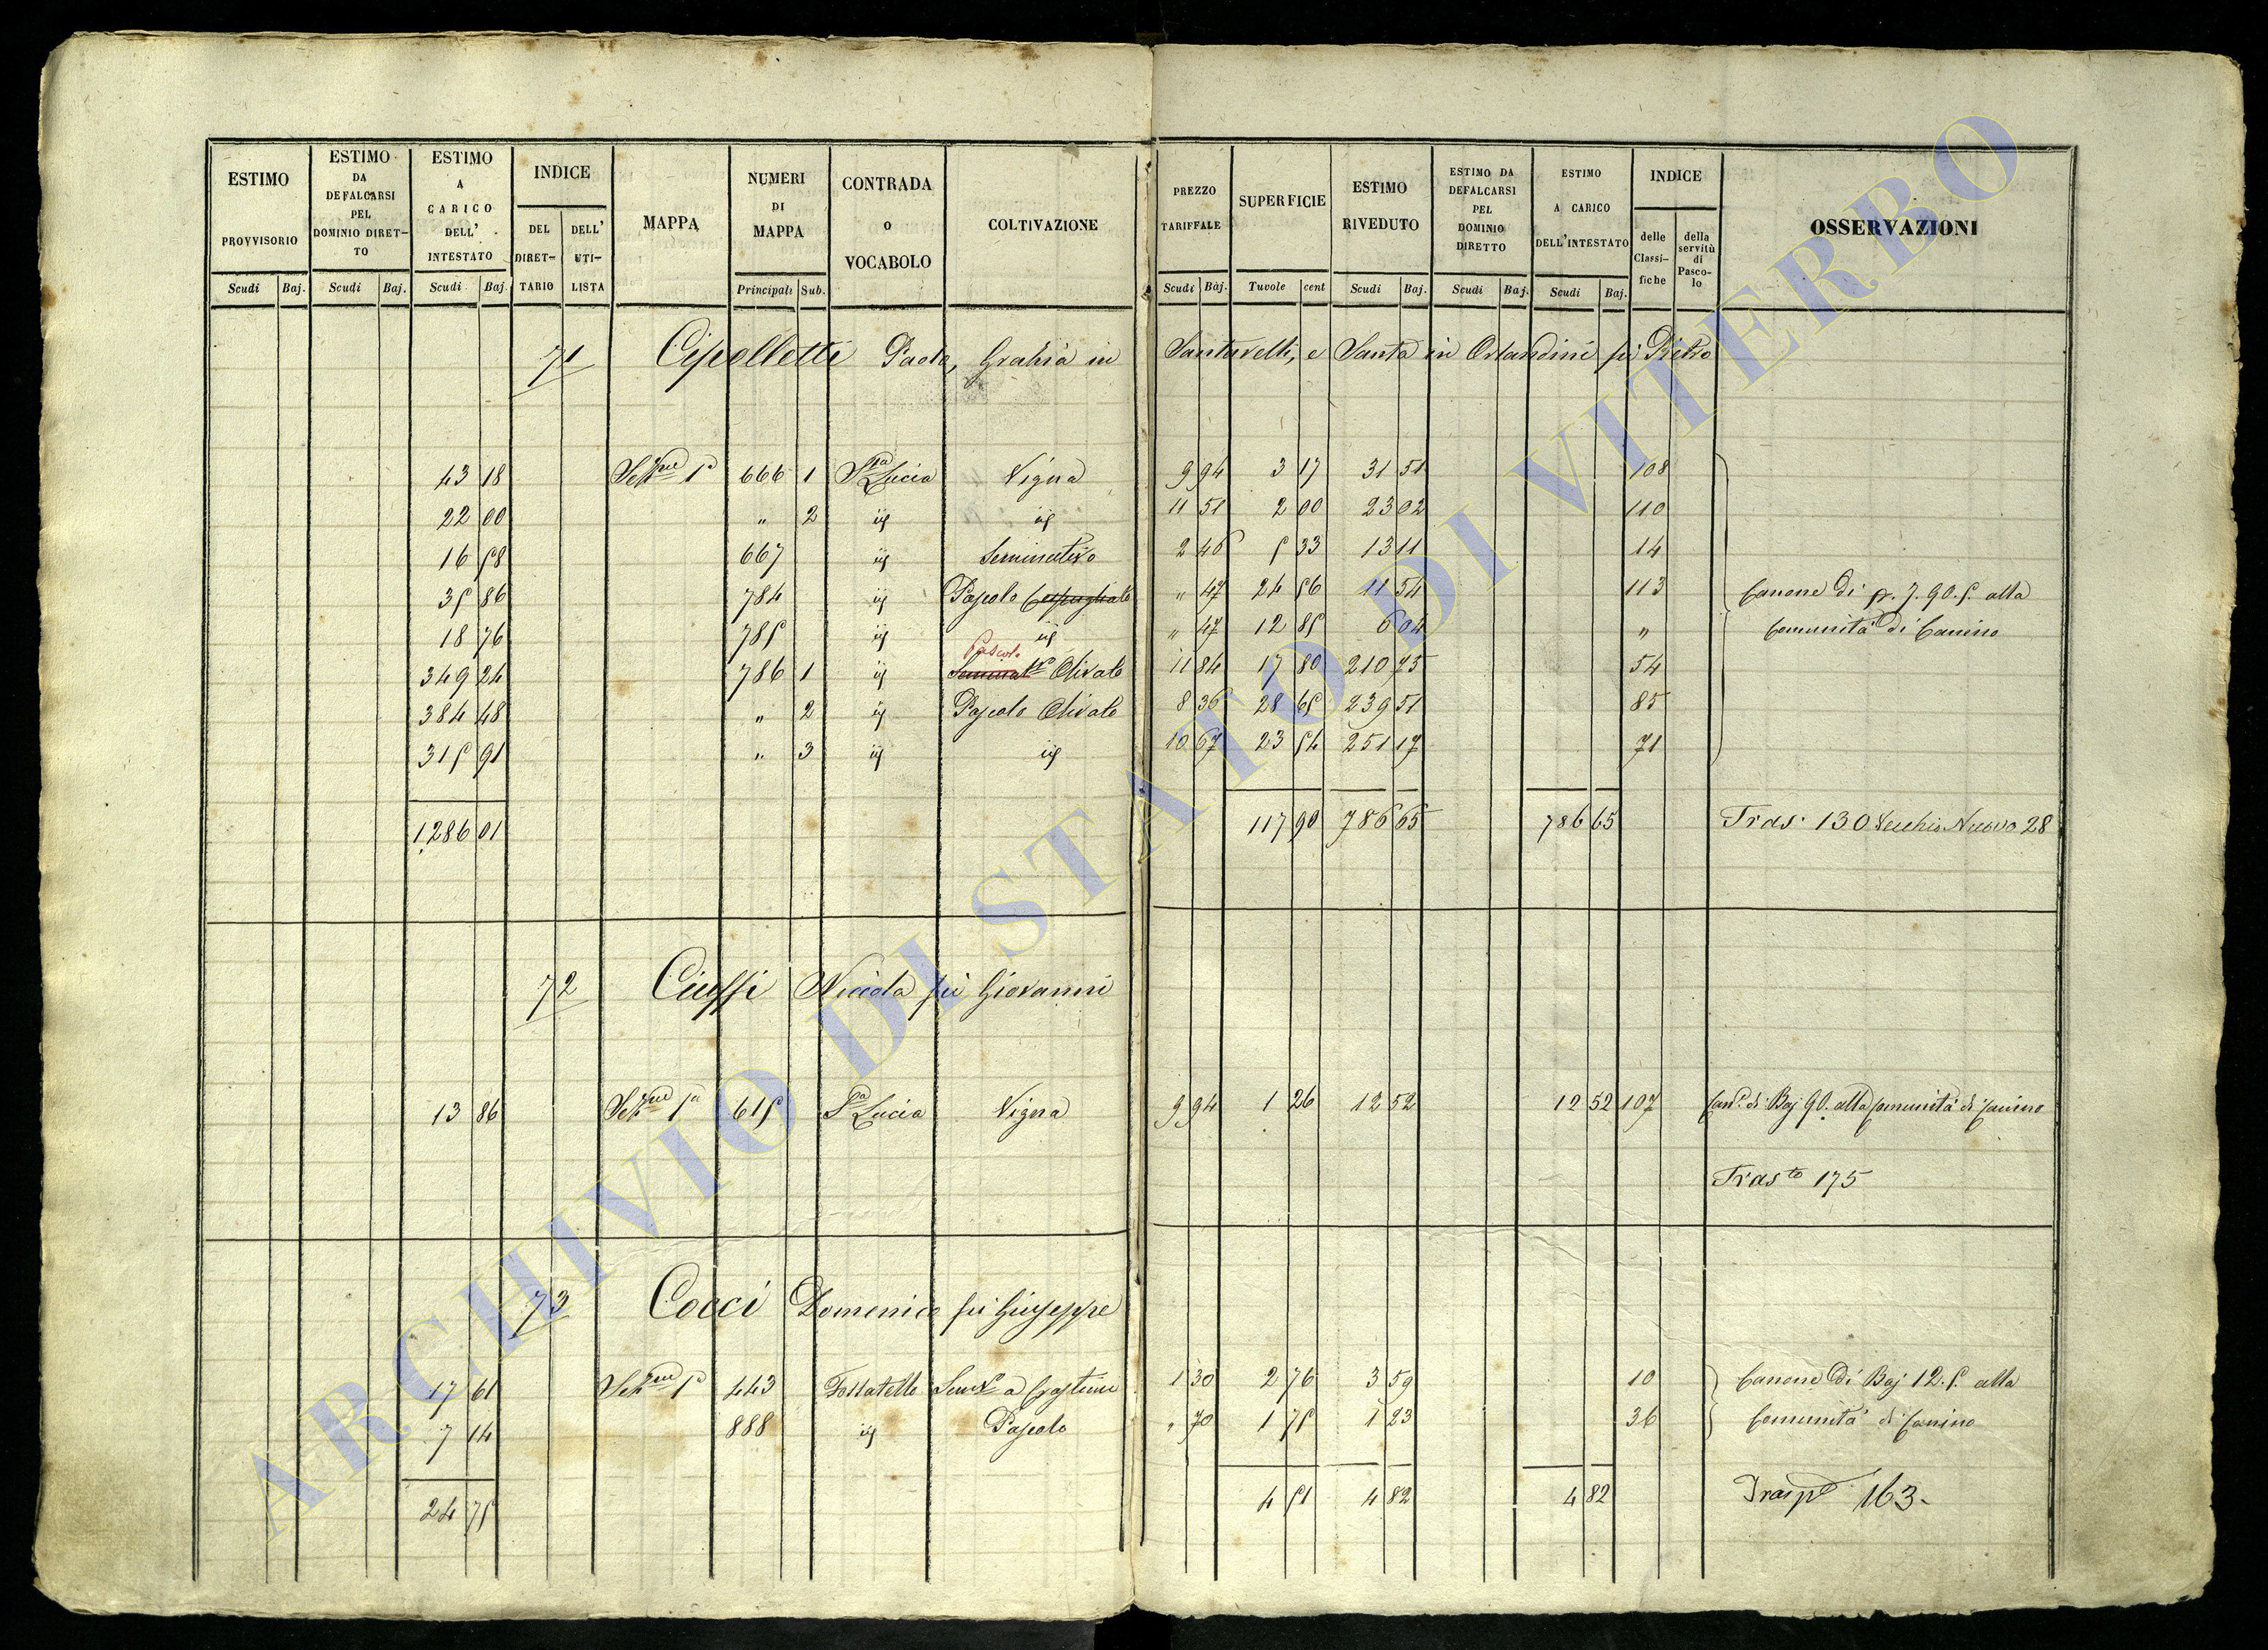 ESTIMO PROVVISORIO
ESTIMO DA DEFALCARSI PEL DOMINIO DIRET-TO
ESTIMO A CARICO DELL' INTESTATO
INDICE
DEL DIRET-TARIO
DELL' UTI-LISTA
MAPPA
NUMERI DI MAPPA
CONTRADA o VOCABOLO
COLTIVAZIONE
PREZZO TARIFFALE
SUPERFICIE
ESTIMO RIVEDUTO
ESTIMO DA DEFALCARSI PEL DOMINIO DIRETTO
ESTIMO A CARICO DELL'INTESTATO
INDICE
delle Classi-fiche
della servitù di Pasco-lo
OSSERVAZIONI
Scudi Baj. Scudi Baj. Scudi Baj. Principali Sub. Scudi Baj. Tavole cent Scudi Baj. Scudi Baj. Scudi Baj.
71 Cipolletti Paolo, Grazia in Santurelli, e Santa in Orlandini fu Pietro
43 18 Sezne 1a 666 1 Sta Lucia Vigna 9 94 3 17 31 51 108
22 00 " 2 id id 11 51 2 00 23 02 110
16 58 667 id Seminativo 2 46 5 33 13 11 14
35 86 784 id Pascolo Cespugliato " 47 24 56 11 54 113 Canone di p. 7.90.5. alla
18 76 785 id id " 47 12 85 6 04 " Comunità di Canino
Pascolo
349 24 786 1 id Seminat.vo Olivato 11 84 17 80 210 75 54
384 48 " 2 id Pascolo Olivato 8 36 28 65 239 51 85
315 91 " 3 id id 10 67 23 54 251 17 71
1,286 01 117 90 786 65 786 65 Tras. 130 Vecchio Nuovo 28
72 Ciuffi Niccola fu Giovanni
13 86 Sezne 1a 615 Sa Lucia Vigna 9 94 1 26 12 52 12 52 107 Can.e di Baj 90. alla Comunità di Canino
Tras.to 175
73 Cocci Domenico fu Giuseppe
17 61 Sezne 1a 443 Fossatello Sem.vo a Grostino 1 30 2 76 3 59 10 Canone di Baj 12.5. alla
7 14 888 id Pascolo " 70 1 75 1 23 36 Comunità di Canino
24 75 4 51 4 82 4 82 Trasp.to 163.
ARCHIVIO DI STATO DI VITERBO